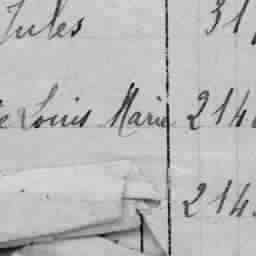 Jules 31
Louis Marie 214
214